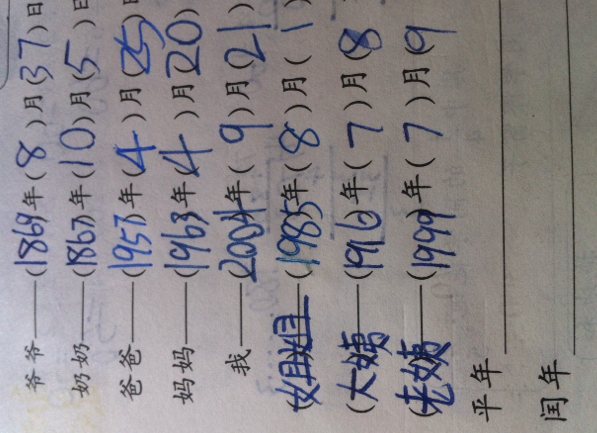 爷爷——(1869)年(8)月(37)日
奶奶——(1867)年(10)月(5)日
爸爸——(1957)年(4)月(25)日
妈妈——(1963)年(4)月(20)
我——(2004)年(9)月(21)
(姐姐)——(1985)年(8)月(1)
(大姨)——(1916)年(7)月(8
(老姨)——(1999)年(7)月(9
平年
闰年